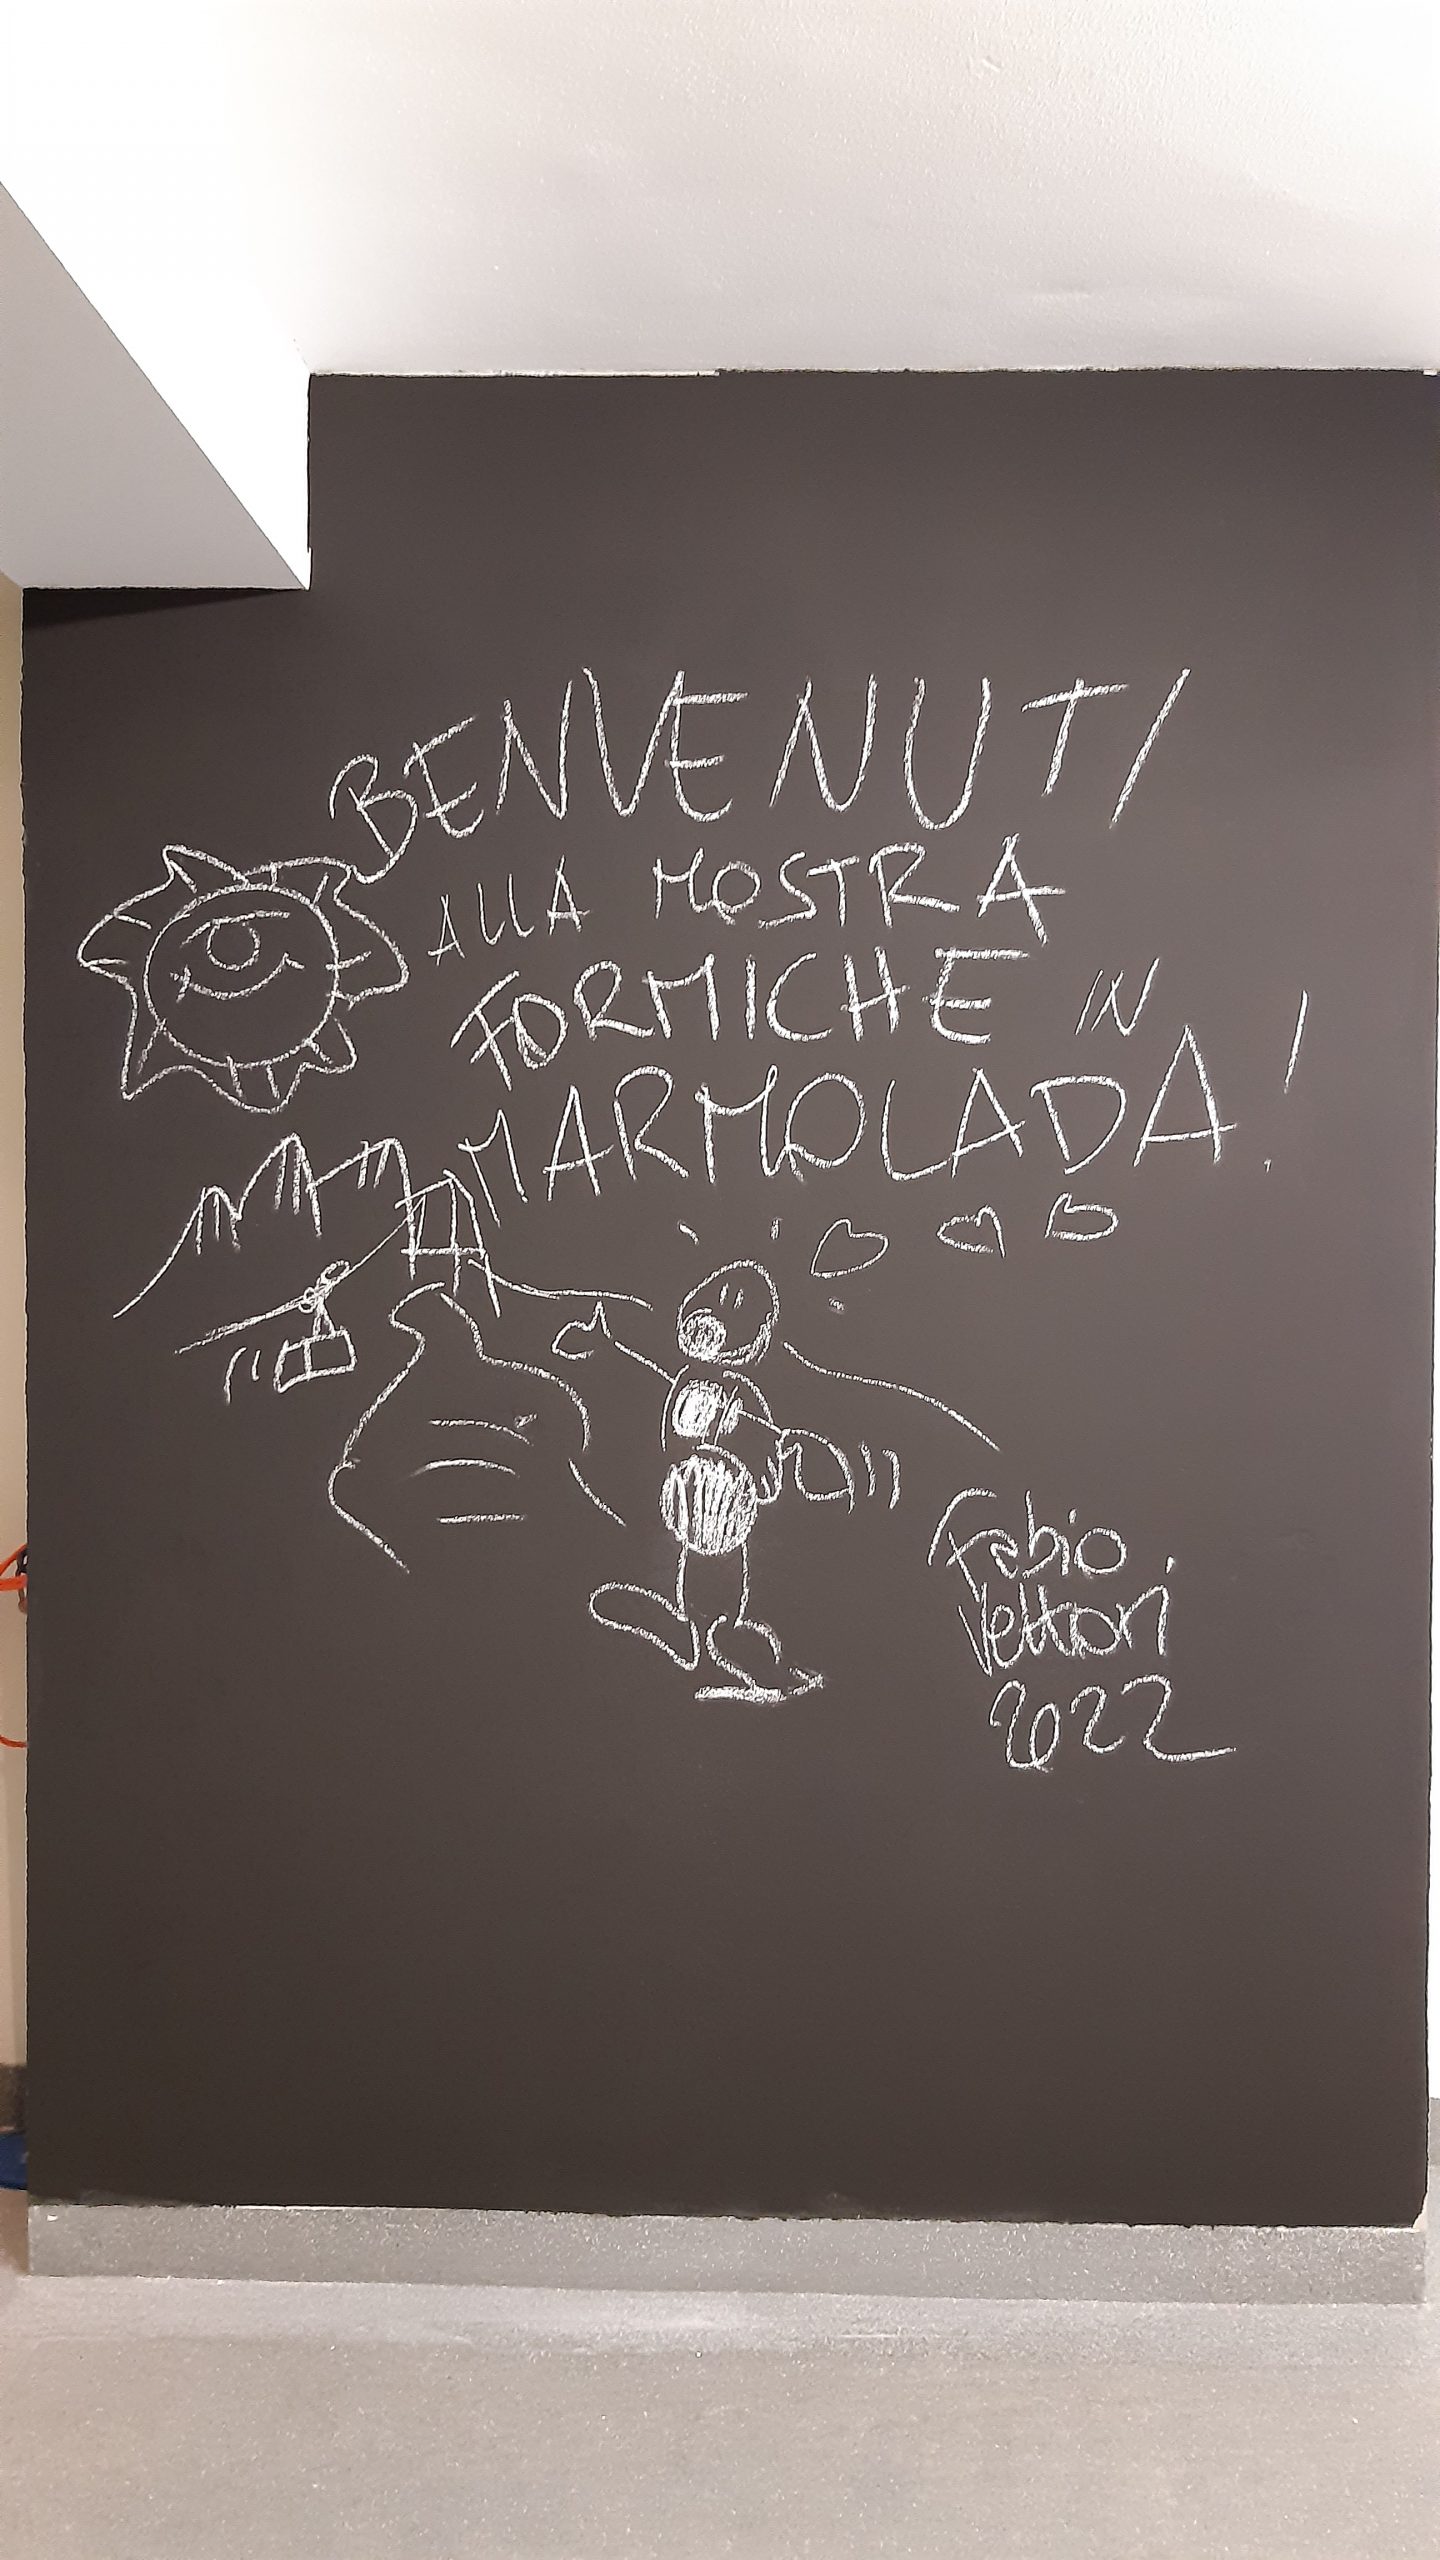 BENVENUTI
ALLA MOSTRA
FORMICHE IN
MARMOLADA!
Fabio
Vettori
2022